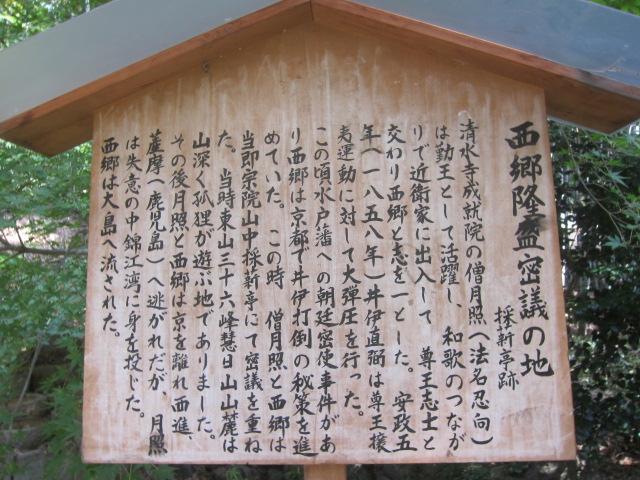 西郷隆盛密議の地
採薪亭跡
清水寺成就院の僧月照(法名忍向)
は勤王として活躍し、和歌のつなが
りで近衛家に出入して 尊王志士と
交わり西郷と志を一とした。 安政五
年(一八五八年)井伊直弼は尊王攘
夷運動に対して大弾圧を行った。
この頃水戸藩への朝廷密使事件があ
り西郷は京都で井伊打倒の秘策を進
めていた。この時 僧月照と西郷は
当即宗院山中採薪亭にて密議を重ね
た。当時東山三十六峰慧日山山麓は
山深く孤狸が遊ぶ地でありました。
その後月照と西郷は京を離れ西進、
薩摩(鹿児島)へ逃がれだが、月照
は失意の中錦江湾に身を投じた。
西郷は大島へ流された。